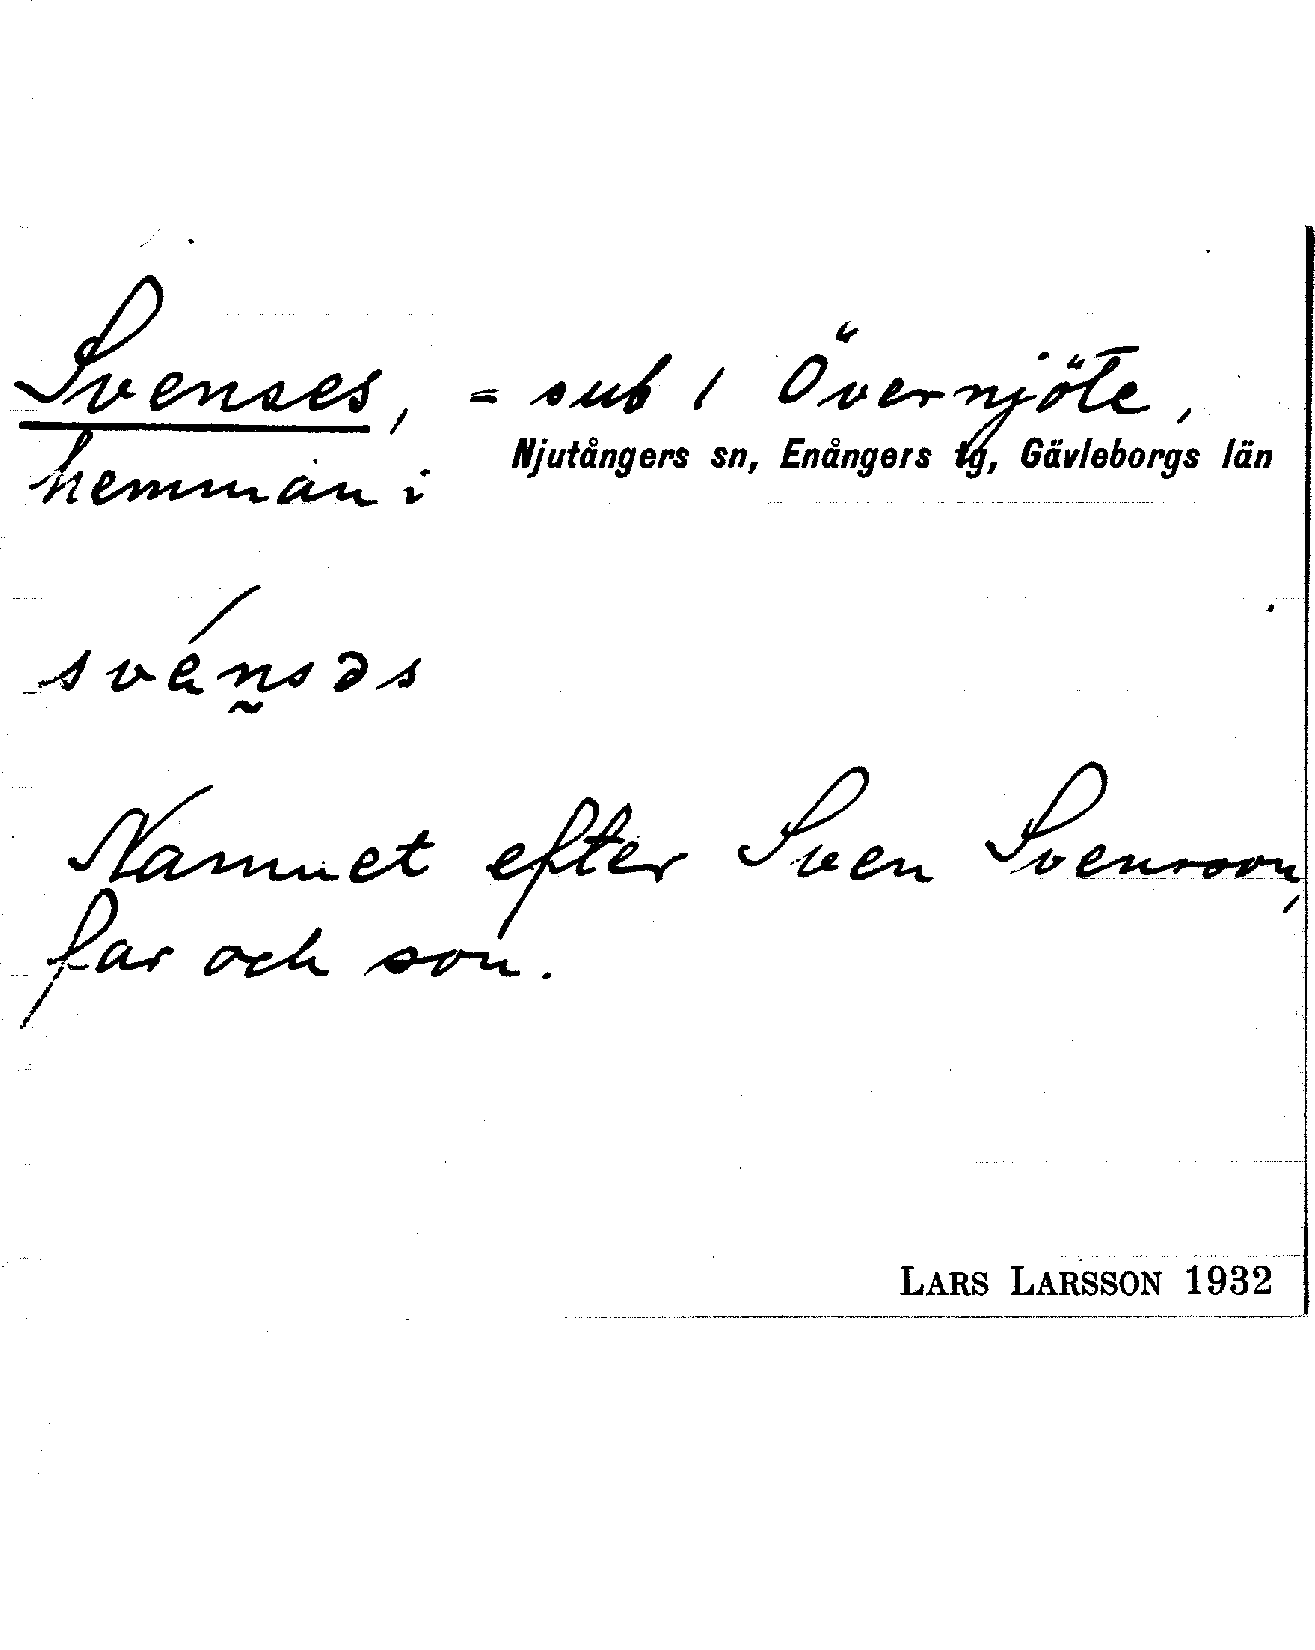 Svenses, = sub 1 Övernjöte,
hemman i Njutångers sn, Enångers tg, Gävleborgs län
svénsəs
Namnet efter Sven Svensson,
far och son.
LARS LARSSON 1932